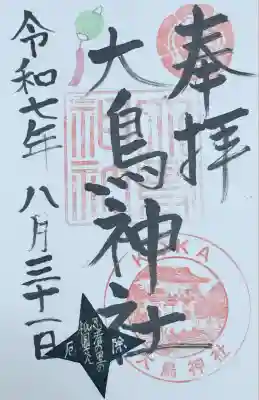 奉拝
大鳥神社
令和七年 八月三十一日
KOKA
大鳥神社
厄
除